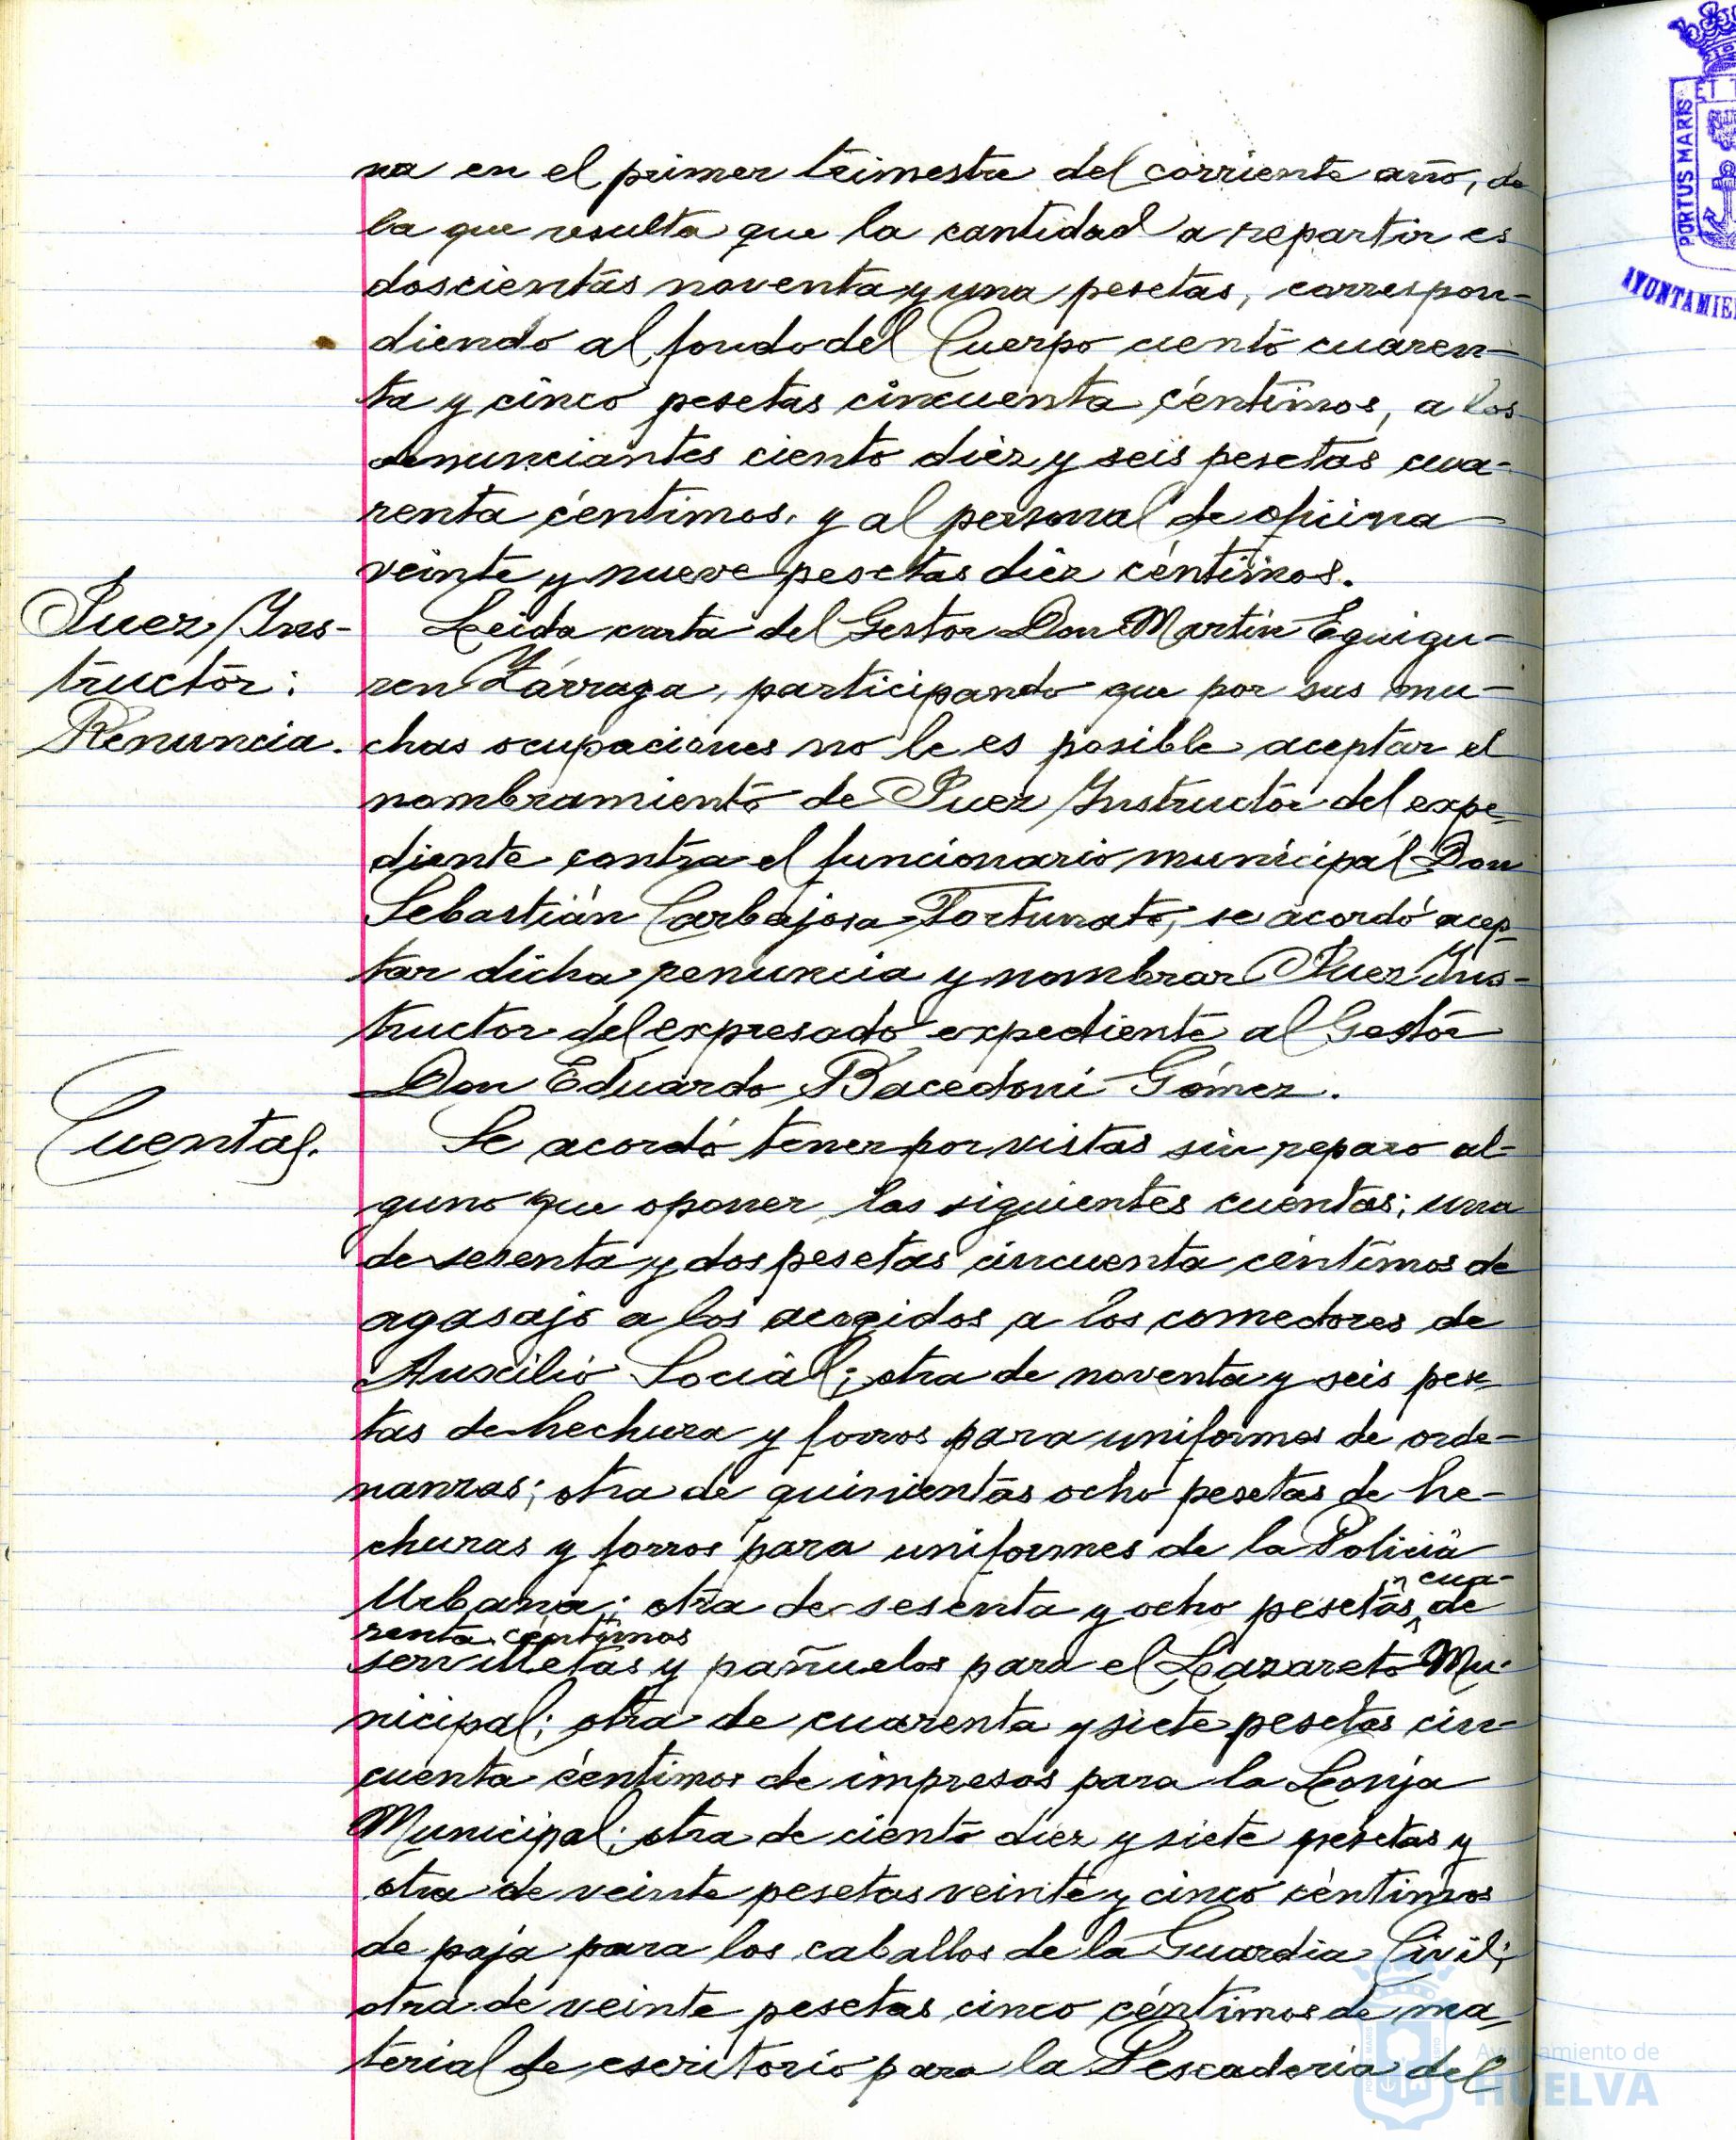 na en el primer trimestre del corriente año, de
la que resulta que la cantidad a repartir es
doscientas noventa y una pesetas, correspon-
diendo al fondo del Cuerpo ciento cuaren-
ta y cinco pesetas cincuenta céntimos, a los
denunciantes ciento diez y seis pesetas cua-
renta céntimos, y al personal de oficina
veinte y nueve pesetas diez céntimos.
Juez Ins-
tructor:
Renuncia.
Leida carta del Gestor Don Martín Eguigu-
ren Zárraga, participando que por sus mu-
chas ocupaciones no le es posible aceptar el
nombramiento de Juez Instructor del expe-
diente contra el funcionario municipal Don
Sebastián Carbajosa Fortunato, se acordó acep-
tar dicha renuncia y nombrar Juez Ins-
tructor del expresado expediente al Gestor
Don Eduardo Bacedoni Gómez.
Cuentas.
Se acordó tener por vistas sin reparo al-
guno que oponer las siguientes cuentas; una
de sesenta y dos pesetas cincuenta céntimos de
agasajo a los acogidos a los comedores de
Auxilio Social; otra de noventa y seis pese-
tas de hechura y forros para uniformes de orde-
nanzas; otra de quinientas ocho pesetas de he-
churas y forros para uniformes de la Policía
cua-
Urbana; otra de sesenta y ocho pesetas de
renta céntimos
servilletas y pañuelos para el Lazareto Mu-
nicipal; otra de cuarenta y siete pesetas cin-
cuenta céntimos de impresos para la Lonja
Municipal; otra de ciento diez y siete pesetas y
otra de veinte pesetas veinte y cinco céntimos
de paja para los caballos de la Guardia Civil;
otra de veinte pesetas cinco céntimos de ma-
terial de escritorio para la Pescadería del
PORTUS MARIS
AYUNTAMIE
Ayuntamiento de
HUELVA